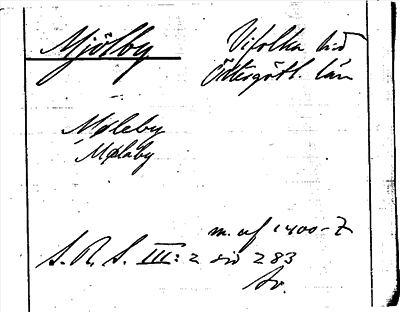 Mjölby
Vifolka hd
Östergötl. län
Møleby
Mølaby
m. af 1400-t
S. R. S. III: 2 sid 283
Sv.